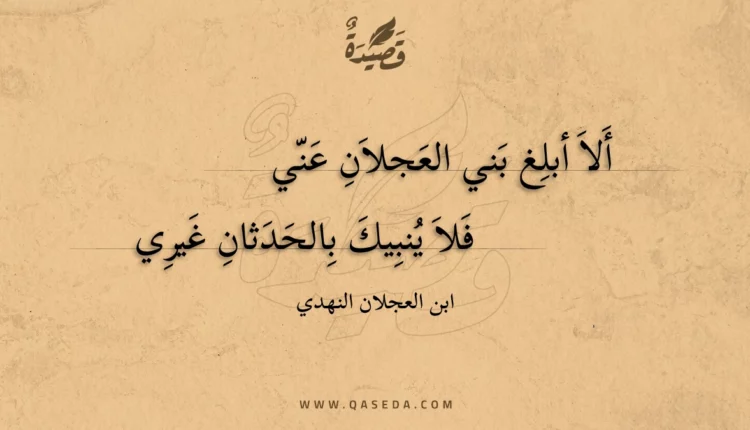 قَصِيدَةٌ
أَلاَ أبلِغ بَني العَجلاَنِ عَنّي
فَلاَ يُنبِيكَ بِالحَدَثانِ غَيرِي
ابن العجلان النهدي
WWW.QASEDA.COM